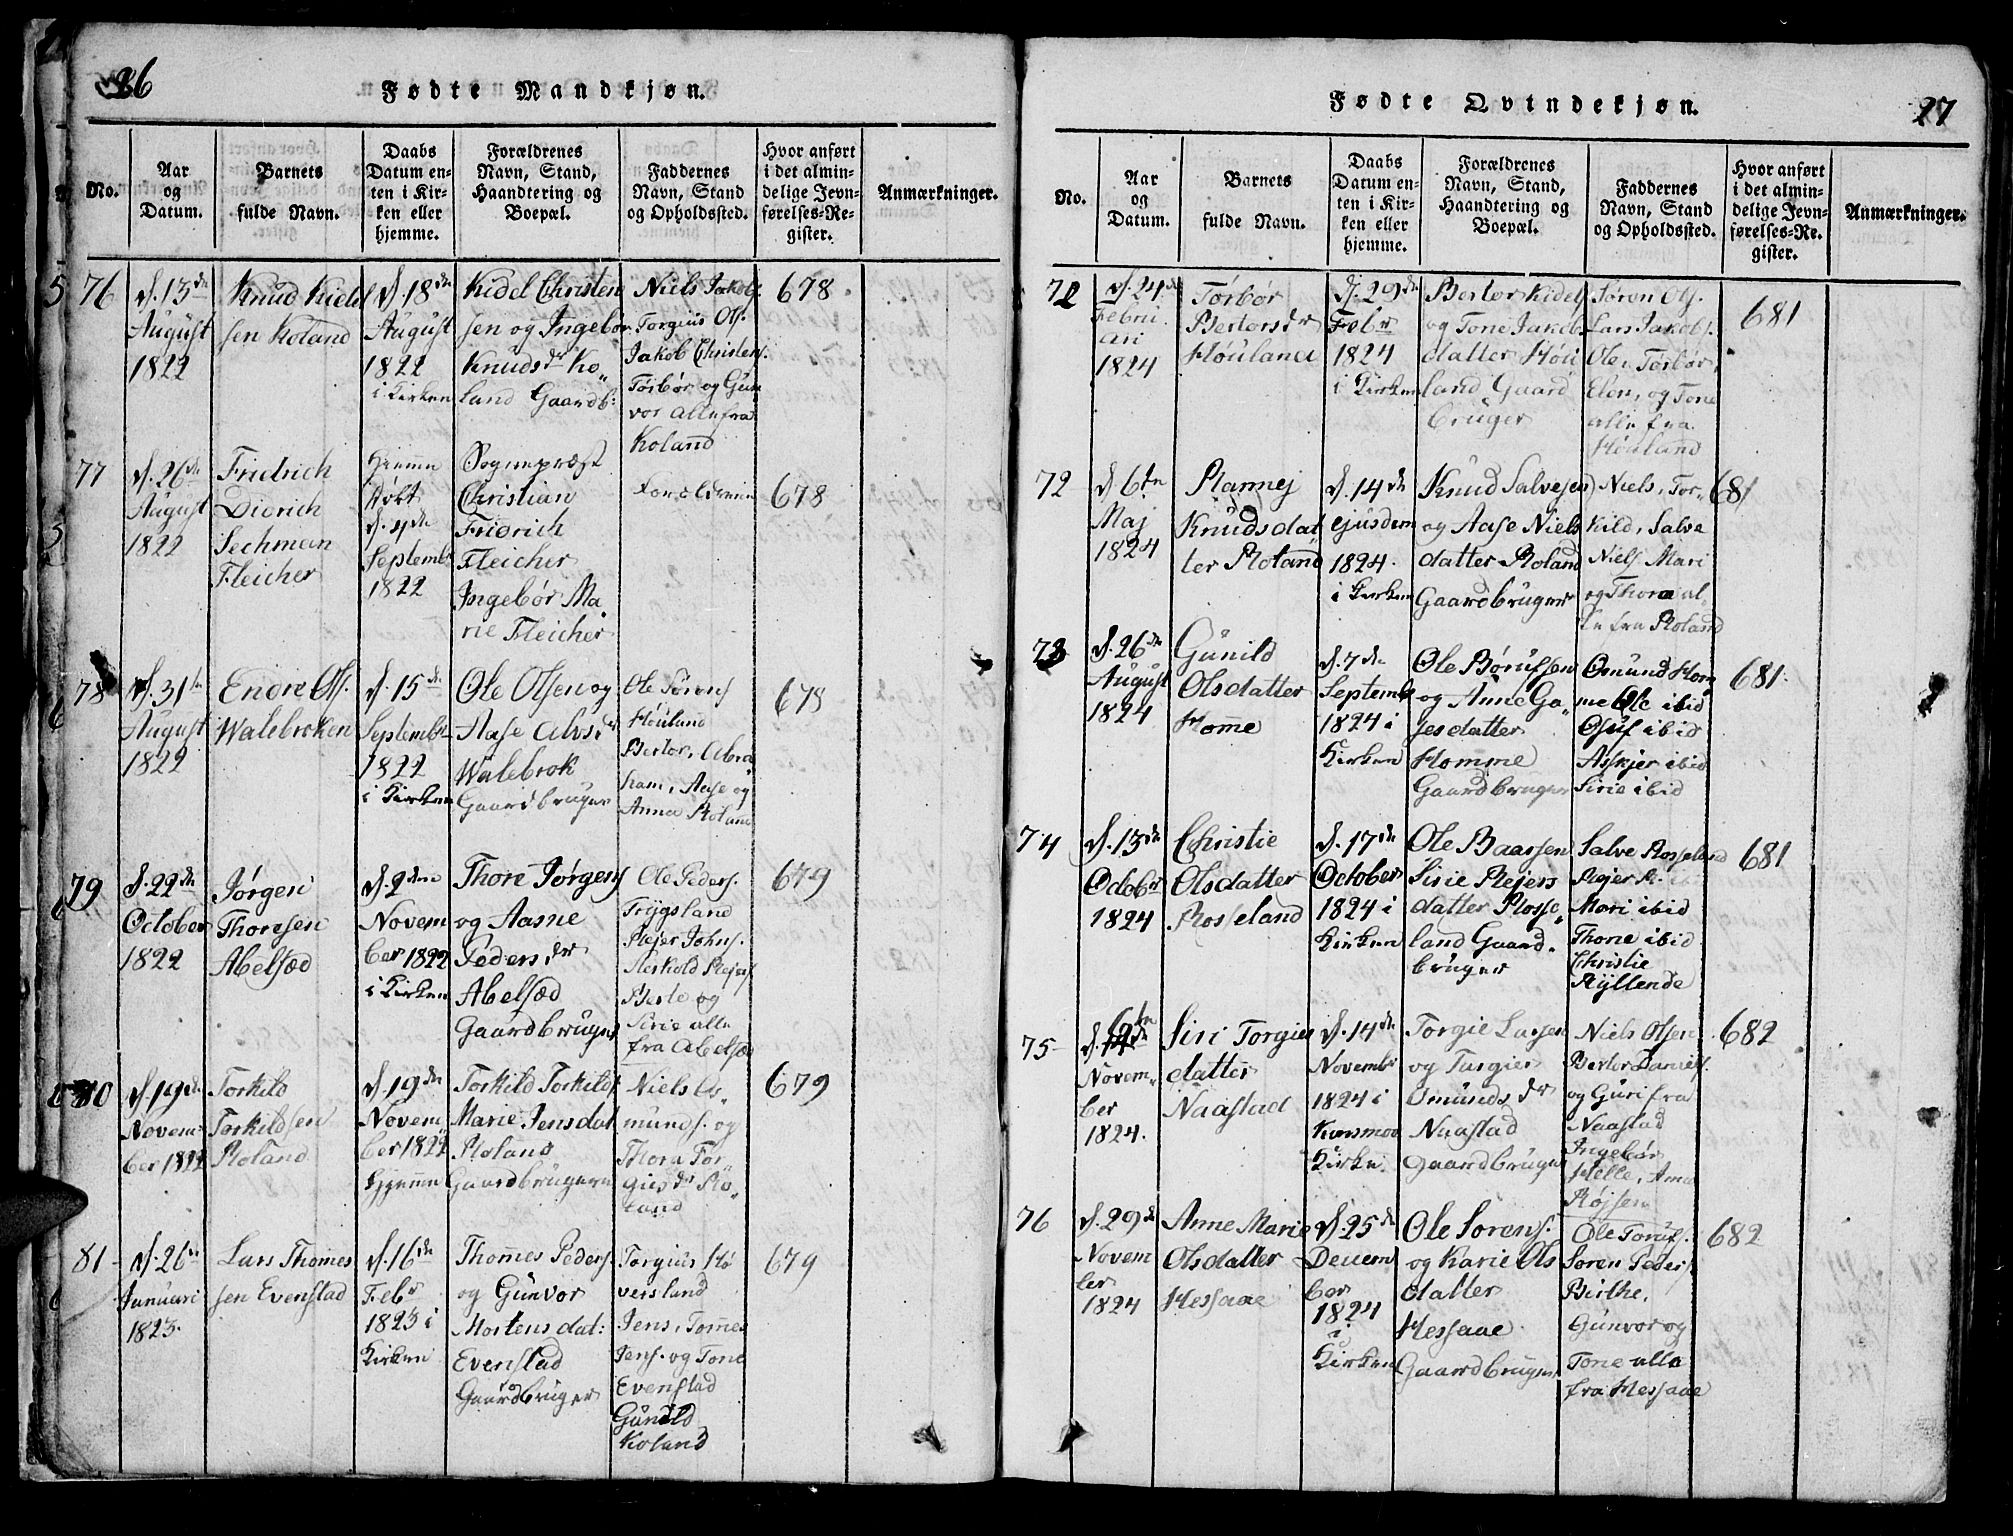 26
Fødte Mandkjøn.
No.
Aar
og
Datum.
Barnets
fulde Navn.
Daabs
Datum en-
ten i Kir-
ken eller
hjemme.
Forældrenes
Navn, Stand,
Haandtering og
Boepæl.
Faddernes
Navn, Stand
og Opholdssted.
Hvor anført
i det almin-
delige Jevn-
førelses-Re-
gister.
Anmærkninger.
76
d. 13de
August
1822
Knud Kidel
sen Koland
d. 18de
August
1822
i Kirken
Kidel Christen
sen og Ingebor
Knuds dr Ko„
land Gaardb:
Niels Jakobs.
Torgius Ols.
Jakob Christens.
Torbør og Gun
vor alle fra
Koland
678
77
d. 26de
August
1822
Fridrich
Didrich
Sechman
Fleicher
Hjemme
døbt
d. 4de
Septembr
1822
Sognepræst
Christian
Fridrich
Fleicher
Ingebør Ma„
rie Fleicher
Forældrene
678
78
d. 31te
August
1822
Endre Ols.
Walebroken
d. 15de
Septembr
1822
i Kirken
Ole Olsen og
Aase Alvs dr
Walebrok
Gaardbruger
Ole Sørens
Høuland
Bertor, Abra
ham, Aase og
Anna Roland
678
79
d. 22de
October
1822
Jørgen
Thoresen
Abelsæd
d. 2den
Novem
ber 1822
i Kirken
Thore Jørgens
og Aasne
Peders dr
Abelsæd
Gaardbruger
Ole Peders.
Trygsland
Rejer Johns.
Aerkold Rejers.
Berte og
Sirie alle
fra Abelsæd
679
80
d. 19de
Novem„
ber 1822
Torkild
Torkildsen
Roland
d. 19de
Novem„
ber 1822
Hjemme
Torkild Torkilds.
Marie Jensdat
Roland
Gaardbrugere
Niels Os„
munds. og
Thora Tor„
gies dr Ro„
land
679
81
d. 26de
Januari
1823.
Lars Thomes
sen Evenstad
d. 16de
Febr
1823 i
Kirken
Thomes Peders.
og Gunvor
Mortens dat:
Evenstad
Gaardbruger
Torgius Hø
versland
Jens, Tomes
Jens. og Tone
Evenstad
Gunild
Koland
679
27
Fødte Qvindekjøn.
No.
Aar
og
Datum.
Barnets
fulde Navn.
Daabs
Datum en-
ten i Kir-
ken eller
hjemme.
Forældrenes
Navn, Stand,
Haandtering og
Boepæl.
Faddernes
Navn, Stand
og Opholdssted.
Hvor anført
i det almin-
delige Jevn-
førelses-Re-
gister.
Anmærkninger.
d. 24de
Febru
ari
1824
Torbør
Bertors dr
Høuland
d. 29de
Febr
1824
i Kirken
Bertor Kidels
og Tone Jakobs
datter Høu
land Gaard
bruger
Søren Ols.
Lars Jakobs.
Ole, Torbør,
Elen, og Tone
alle fra
Høuland
681
72
d 6te
Maj
1824
Rannej
Knudsdat
ter Roland
d. 14de
ejusdem
1824.
i Kirken
Knud Salvesen
og Aase Niels
datter Roland
Gaardbruger
Niels, Tor„
kild, Salve
Niels. Mari
og Thora al„
le fra Roland
681
73
d. 26de
August
1824
Gunild
Olsdatter
Homme
d. 7de
Septembr
1824 i
Kirken
Ole Børufsen
og Anne Ga„
sesdatter
Homme
Gaardbruger
Osmund Hom
me Ole ibid
Osuf ibid
Askjer ibid
Sirie ibid
681
74
d. 13de
Octobr
1824
Christie
Olsdatter
Rosseland
d. 17de
October
1824 i
Kirken
Ole Baarsen
Sirie Rejers
datter Rosse„
land Gaard„
bruger
Salve Rosseland
Rejer R. ibid
Mari ibid
Thone ibid
Christie
Ryllende
681
75
d. 6te
Novem„
ber
1824.
Siri Torgies
datter
Naastad
d. 14de
Novembr
1824 i
Kirke
Torgie Larsen
og Turgier
Omunds dr
Naastad
Gaardbruger
Niels Olsen
Bertor Daniels.
og Guri fra
Naastad
Ingebør
Helle, Anne
Røjsen
682
76
d. 29de
Novem
ber
1824
Anne Marie
Olsdatter
Hessaae
d. 25de
Decem
ber
1824
i
Kirken
Ole Sorens.
og Karie Ols
datter
Hessaae
Gaardbruger
Ole Toruf.
Soren Peder
Birthe,
Gunvor og
Tone alle
fra Hessaae
682